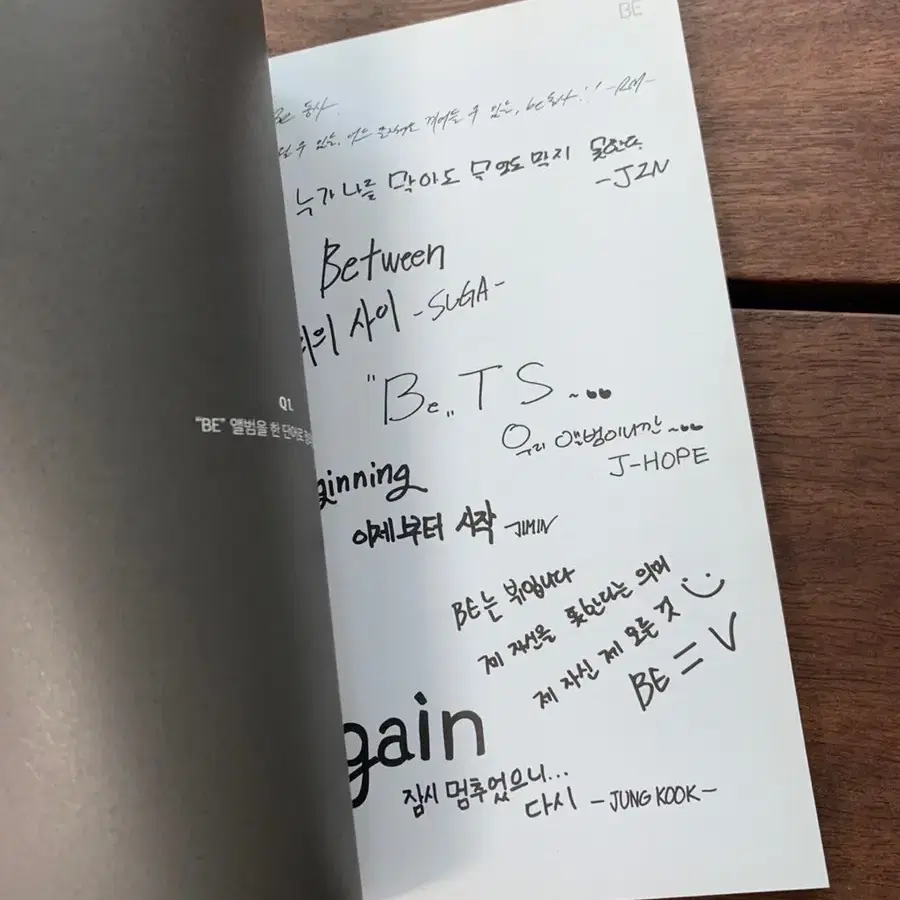 BE
Q1
"BE" 앨범을 한 단어로
Be 동사.
수 있는, be동사!! -RM-
누가 나를 막아도 무엇도 막지 못한다
-JIN
Between
의 사이 -SUGA-
"Be" TS ~
우리 앨범이니깐~
J-HOPE
ginning
이제부터 시작 -JIMIN
BE는 뷔입니다
제 자신을 뜻한다는 의미
제 자신 제 모든 것
BE = V
gain
잠시 멈추었으니...
다시 -JUNG KOOK-